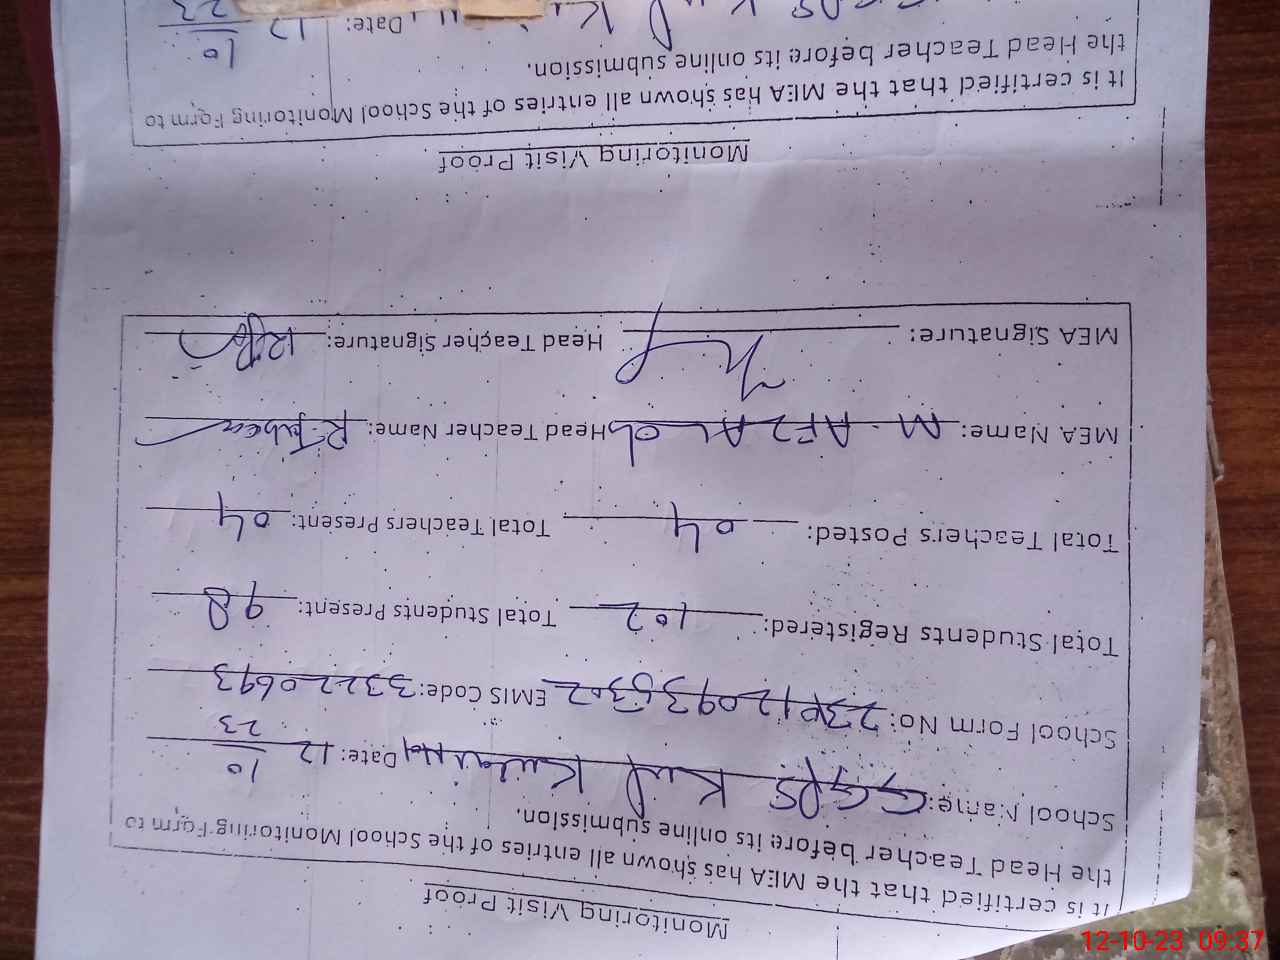 Monitoring Visit Proof
It is certified that the MEA has shown all entries of the School Monitoring Form to
the Head Teacher before its online submission.
School Name: GGPS Kund Date: 12 10 23
School Form No: EMIS Code: 33220693
Total Students Registered: 102 Total Students Present: 98
Total Teachers Posted: 04 Total Teachers Present: 04
MEA Name: M. AFZAL Head Teacher Name:
MEA Signature: Head Teacher Signature:
Monitoring Visit Proof
It is certified that the MEA has shown all entries of the School Monitoring Form to
the Head Teacher before its online submission.
Date: 12 10 23
12-10-23 09:37